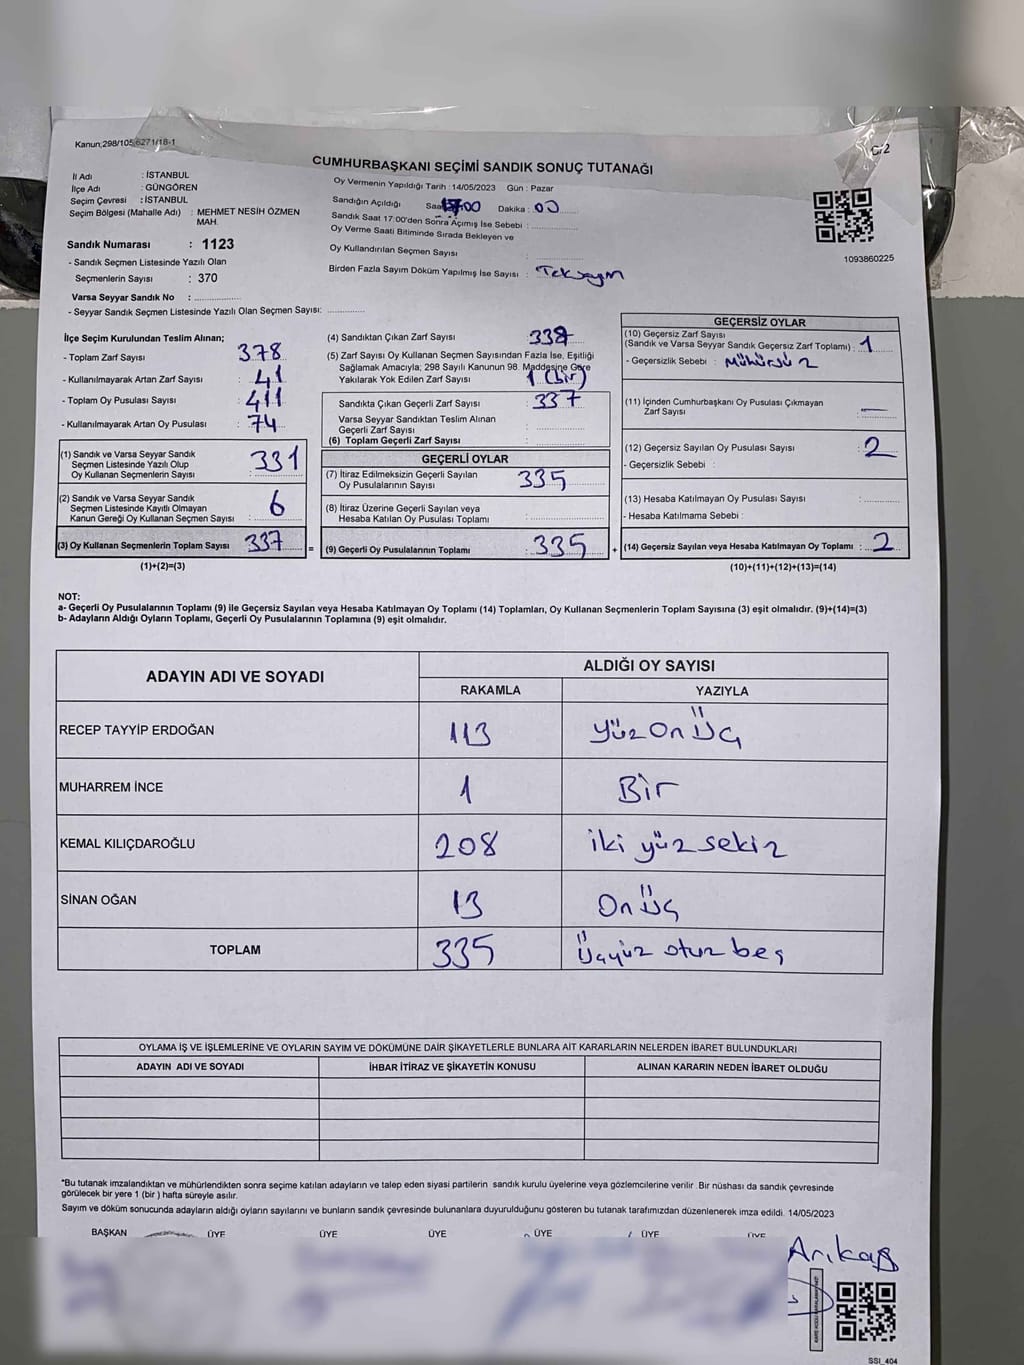 Kanun;298/105,6271/18-1
CUMHURBAŞKANI SEÇİMİ SANDIK SONUÇ TUTANAĞI
İl Adı : İSTANBUL
İlçe Adı : GÜNGÖREN
Seçim Çevresi : İSTANBUL
Seçim Bölgesi (Mahalle Adı) : MEHMET NESİH ÖZMEN
MAH.
Sandık Numarası : 1123
- Sandık Seçmen Listesinde Yazılı Olan
Seçmenlerin Sayısı : 370
Varsa Seyyar Sandık No :
- Seyyar Sandık Seçmen Listesinde Yazılı Olan Seçmen Sayısı:
Oy Vermenin Yapıldığı Tarih : 14/05/2023 Gün : Pazar
Sandığın Açıldığı Saat 17:00 Dakika : 00
Sandık Saat 17:00'den Sonra Açımış İse Sebebi :
Oy Verme Saati Bitiminde Sırada Bekleyen ve
Oy Kullandırılan Seçmen Sayısı :
Birden Fazla Sayım Döküm Yapılmış İse Sayısı : Tek sayım
1093860225
İlçe Seçim Kurulundan Teslim Alınan;
- Toplam Zarf Sayısı : 378
- Kullanılmayarak Artan Zarf Sayısı : 41
- Toplam Oy Pusulası Sayısı : 411
- Kullanılmayarak Artan Oy Pusulası : 74
(1) Sandık ve Varsa Seyyar Sandık
Seçmen Listesinde Yazılı Olup
Oy Kullanan Seçmenlerin Sayısı : 331
(2) Sandık ve Varsa Seyyar Sandık
Seçmen Listesinde Kayıtlı Olmayan
Kanun Gereği Oy Kullanan Seçmen Sayısı : 6
(3) Oy Kullanan Seçmenlerin Toplam Sayısı : 337
(1)+(2)=(3)
(4) Sandıktan Çıkan Zarf Sayısı : 338
(5) Zarf Sayısı Oy Kullanan Seçmen Sayısından Fazla İse, Eşitliği
Sağlamak Amacıyla; 298 Sayılı Kanunun 98. Maddesine Göre
Yakılarak Yok Edilen Zarf Sayısı : 1 (bir)
Sandıkta Çıkan Geçerli Zarf Sayısı : 337
Varsa Seyyar Sandıktan Teslim Alınan
Geçerli Zarf Sayısı :
(6) Toplam Geçerli Zarf Sayısı :
GEÇERLİ OYLAR
(7) İtiraz Edilmeksizin Geçerli Sayılan
Oy Pusulalarının Sayısı : 335
(8) İtiraz Üzerine Geçerli Sayılan veya
Hesaba Katılan Oy Pusulası Toplamı :
= (9) Geçerli Oy Pusulalarının Toplamı : 335
GEÇERSİZ OYLAR
(10) Geçersiz Zarf Sayısı
(Sandık ve Varsa Seyyar Sandık Geçersiz Zarf Toplamı) : 1
- Geçersizlik Sebebi : Mühürsüz
(11) İçinden Cumhurbaşkanı Oy Pusulası Çıkmayan
Zarf Sayısı : —
(12) Geçersiz Sayılan Oy Pusulası Sayısı : 2
- Geçersizlik Sebebi :
(13) Hesaba Katılmayan Oy Pusulası Sayısı :
- Hesaba Katılmama Sebebi :
+ (14) Geçersiz Sayılan veya Hesaba Katılmayan Oy Toplamı : 2
(10)+(11)+(12)+(13)=(14)
NOT:
a- Geçerli Oy Pusulalarının Toplamı (9) ile Geçersiz Sayılan veya Hesaba Katılmayan Oy Toplamı (14) Toplamları, Oy Kullanan Seçmenlerin Toplam Sayısına (3) eşit olmalıdır. (9)+(14)=(3)
b- Adayların Aldığı Oyların Toplamı, Geçerli Oy Pusulalarının Toplamına (9) eşit olmalıdır.
ADAYIN ADI VE SOYADI ALDIĞI OY SAYISI
RAKAMLA YAZIYLA
RECEP TAYYİP ERDOĞAN 113 Yüz on üç
MUHARREM İNCE 1 Bir
KEMAL KILIÇDAROĞLU 208 iki yüz sekiz
SİNAN OĞAN 13 On üç
TOPLAM 335 Üçyüz otuz beş
OYLAMA İŞ VE İŞLEMLERİNE VE OYLARIN SAYIM VE DÖKÜMÜNE DAİR ŞİKAYETLERLE BUNLARA AİT KARARLARIN NELERDEN İBARET BULUNDUKLARI
ADAYIN ADI VE SOYADI İHBAR İTİRAZ VE ŞİKAYETİN KONUSU ALINAN KARARIN NEDEN İBARET OLDUĞU
*Bu tutanak imzalandıktan ve mühürlendikten sonra seçime katılan adayların ve talep eden siyasi partilerin sandık kurulu üyelerine veya gözlemcilerine verilir. Bir nüshası da sandık çevresinde
görülecek bir yere 1 (bir ) hafta süreyle asılır.
Sayım ve döküm sonucunda adayların aldığı oyların sayılarını ve bunların sandık çevresinde bulunanlara duyurulduğunu gösteren bu tutanak tarafımızdan düzenlenerek imza edildi. 14/05/2023
BAŞKAN ÜYE ÜYE ÜYE ÜYE ÜYE ÜYE
Arıkaş
SSI_404